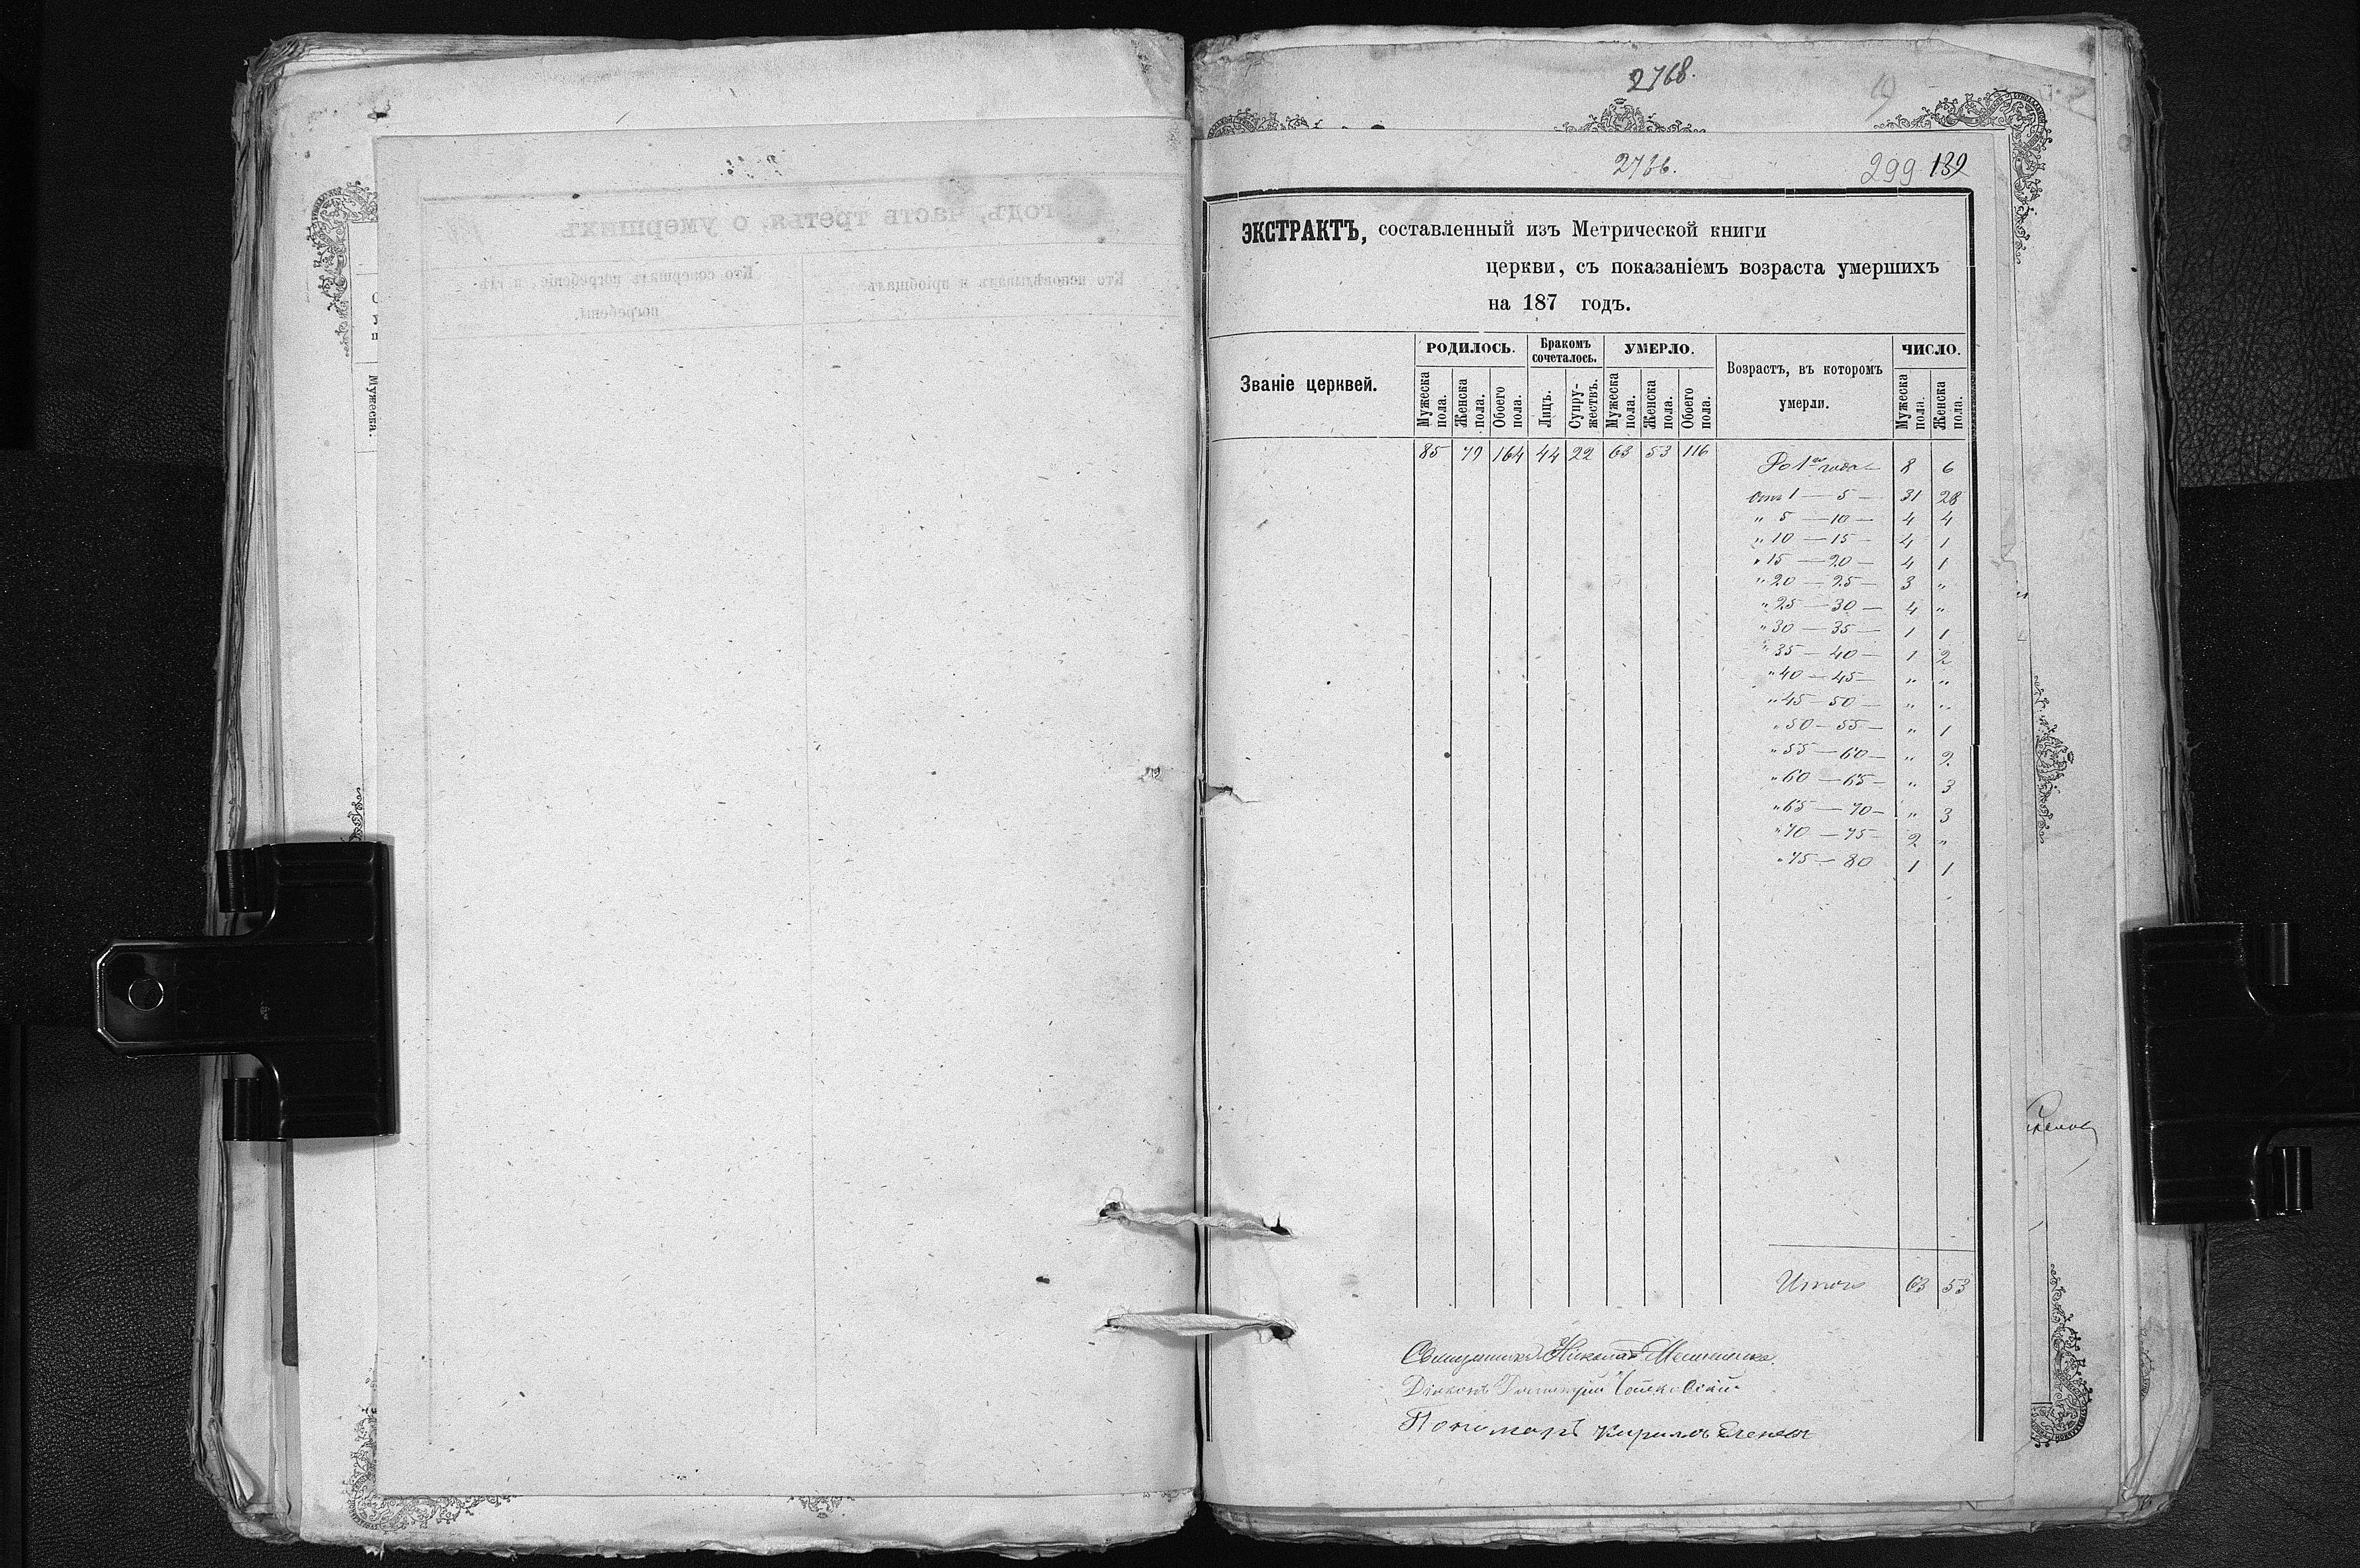 2768.
2766.
299 139
ЭКСТРАКТЪ, составленный изъ Метрической книги
церкви, съ показаніемъ возраста умершихъ
на 187 годъ.
Званіе церквей.
РОДИЛОСЬ.
Мужеска пола.
Женска пола.
Обоего пола.
Бракомъ сочеталось.
Лицъ.
Супружествъ.
УМЕРЛО.
Мужеска пола.
Женска пола.
Обоего пола.
Возрастъ, въ которомъ умерли.
ЧИСЛО.
Мужеска пола.
Женска пола.
85 79 164 44 22 63 53 116
До 1го года 8 6
Отъ 1 — 5 — 31 28
" 5 — 10 — 4 4
" 10 — 15 — 4 1
" 15 — 20 — 4 1
" 20 — 25 — 3 "
" 25 — 30 — 4 "
" 30 — 35 — 1 1
" 35 — 40 — 1 2
" 40 — 45 — " "
" 45 — 50 — " "
" 50 — 55 — " 1
" 55 — 60 — " 2
" 60 — 65 — " 3
" 65 — 70 — " 3
" 70 — 75 — 2 "
" 75 — 80 1 1
Итого 63 53
Священникъ Николай
Діаконъ Димитрій
Пономарь Кириллъ
годъ, часть третья, о умершихъ.
Кто исповѣдывалъ и пріобщалъ.
Кто совершалъ погребеніе, и гдѣ
погребены.
Мужеска.